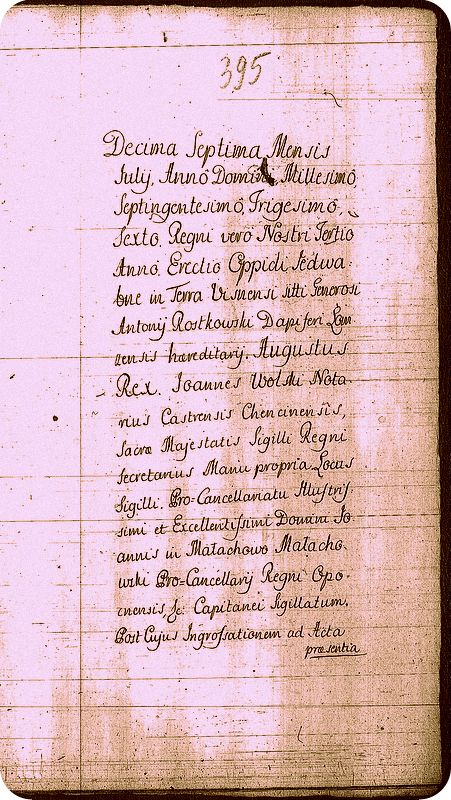 395
Decima Septima Mensis
Julij, Anno Domini Millesimo
Septingentesimo, Trigesimo,
Sexto. Regni vero Nostri Tertio
Anno. Erectio Oppidi Jedwa-
bne in Terra Visnensi siti Generosi
Antonij Rostkowski Dapiferi Lom
zensis hæreditarij. Augustus
Rex. Joannes Wolski Nota-
rius Castrensis Chencinensis,
Sacræ Majestatis Sigilli Regni
Secretarius Manu propria. Locus
Sigilli. Pro-Cancellariatu Illustris-
simi et Excellentissimi Domini Jo-
annis in Małachowo Małacho-
wski Pro-Cancellarij Regni Opo-
cnensis, &c. Capitanei Sigillatum.
Post Cujus Ingrossationem ad Acta
præsentia